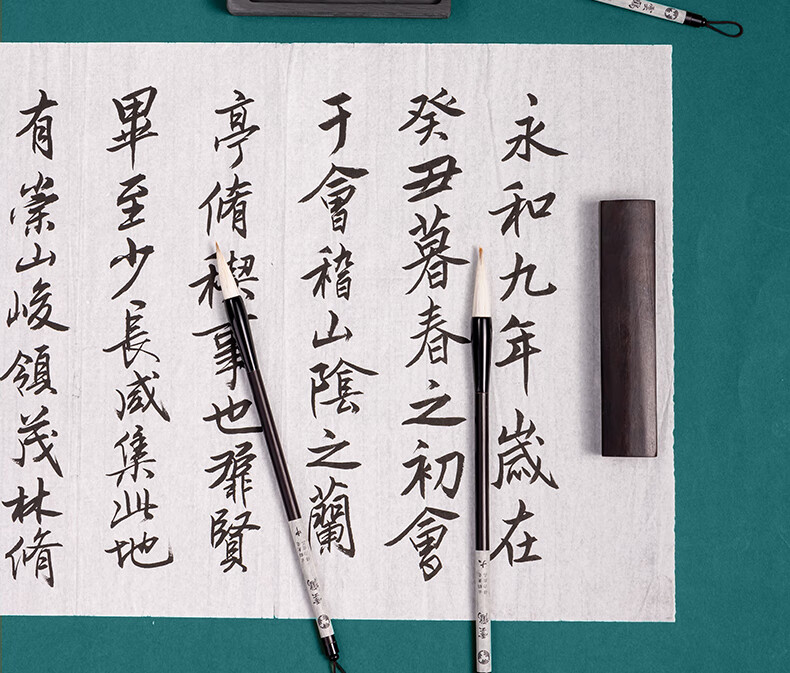 永和九年歲在
癸丑暮春之初會
于會稽山陰之蘭
亭脩稧事也羣賢
畢至少長咸集此地
有崇山峻領茂林脩
大
中